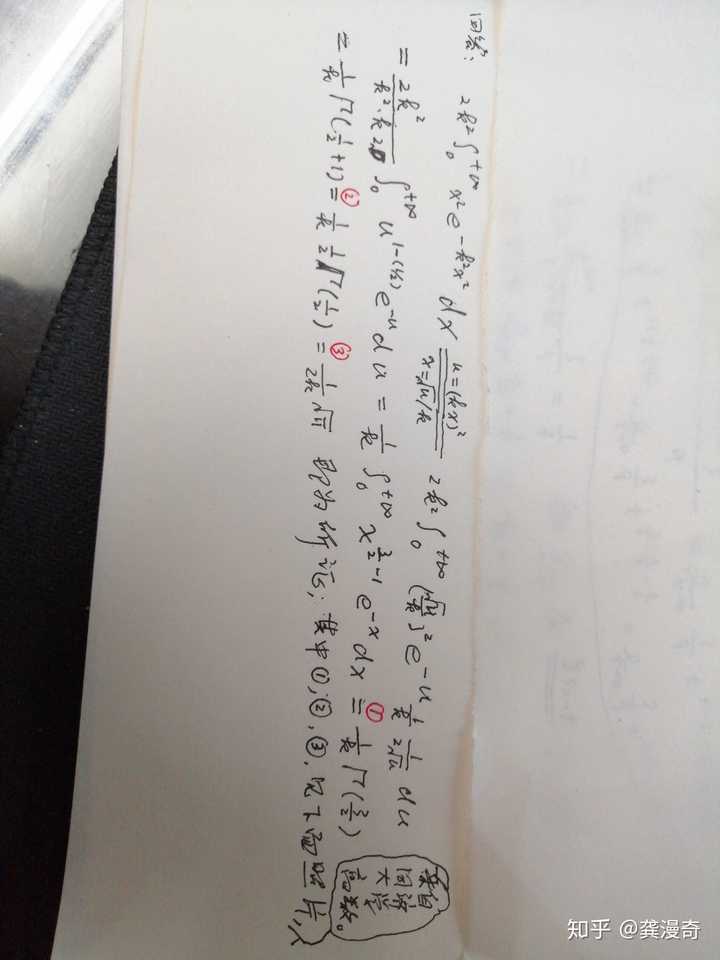 回答:
2k²∫₀^{+∞} x² e^{-k²x²} dx \xlongequal[x=√u/k]{u=(kx)²} 2k²∫₀^{+∞} (√u/k)² e^{-u} \frac{1}{k} \frac{1}{2√u} du
= \frac{2k²}{k²·k·2} ∫₀^{+∞} u^{1-(1/2)} e^{-u} du = \frac{1}{k} ∫₀^{+∞} x^{\frac{3}{2}-1} e^{-x} dx \overset{①}{=} \frac{1}{k} Γ(\frac{3}{2})
= \frac{1}{k} Γ(\frac{1}{2}+1) \overset{②}{=} \frac{1}{k} \frac{1}{2} Γ(\frac{1}{2}) \overset{③}{=} \frac{1}{2k} √π 即为所证; 其中①,②,③,见下面照片,
来自
同济
大学
高数。
知乎 @龚漫奇